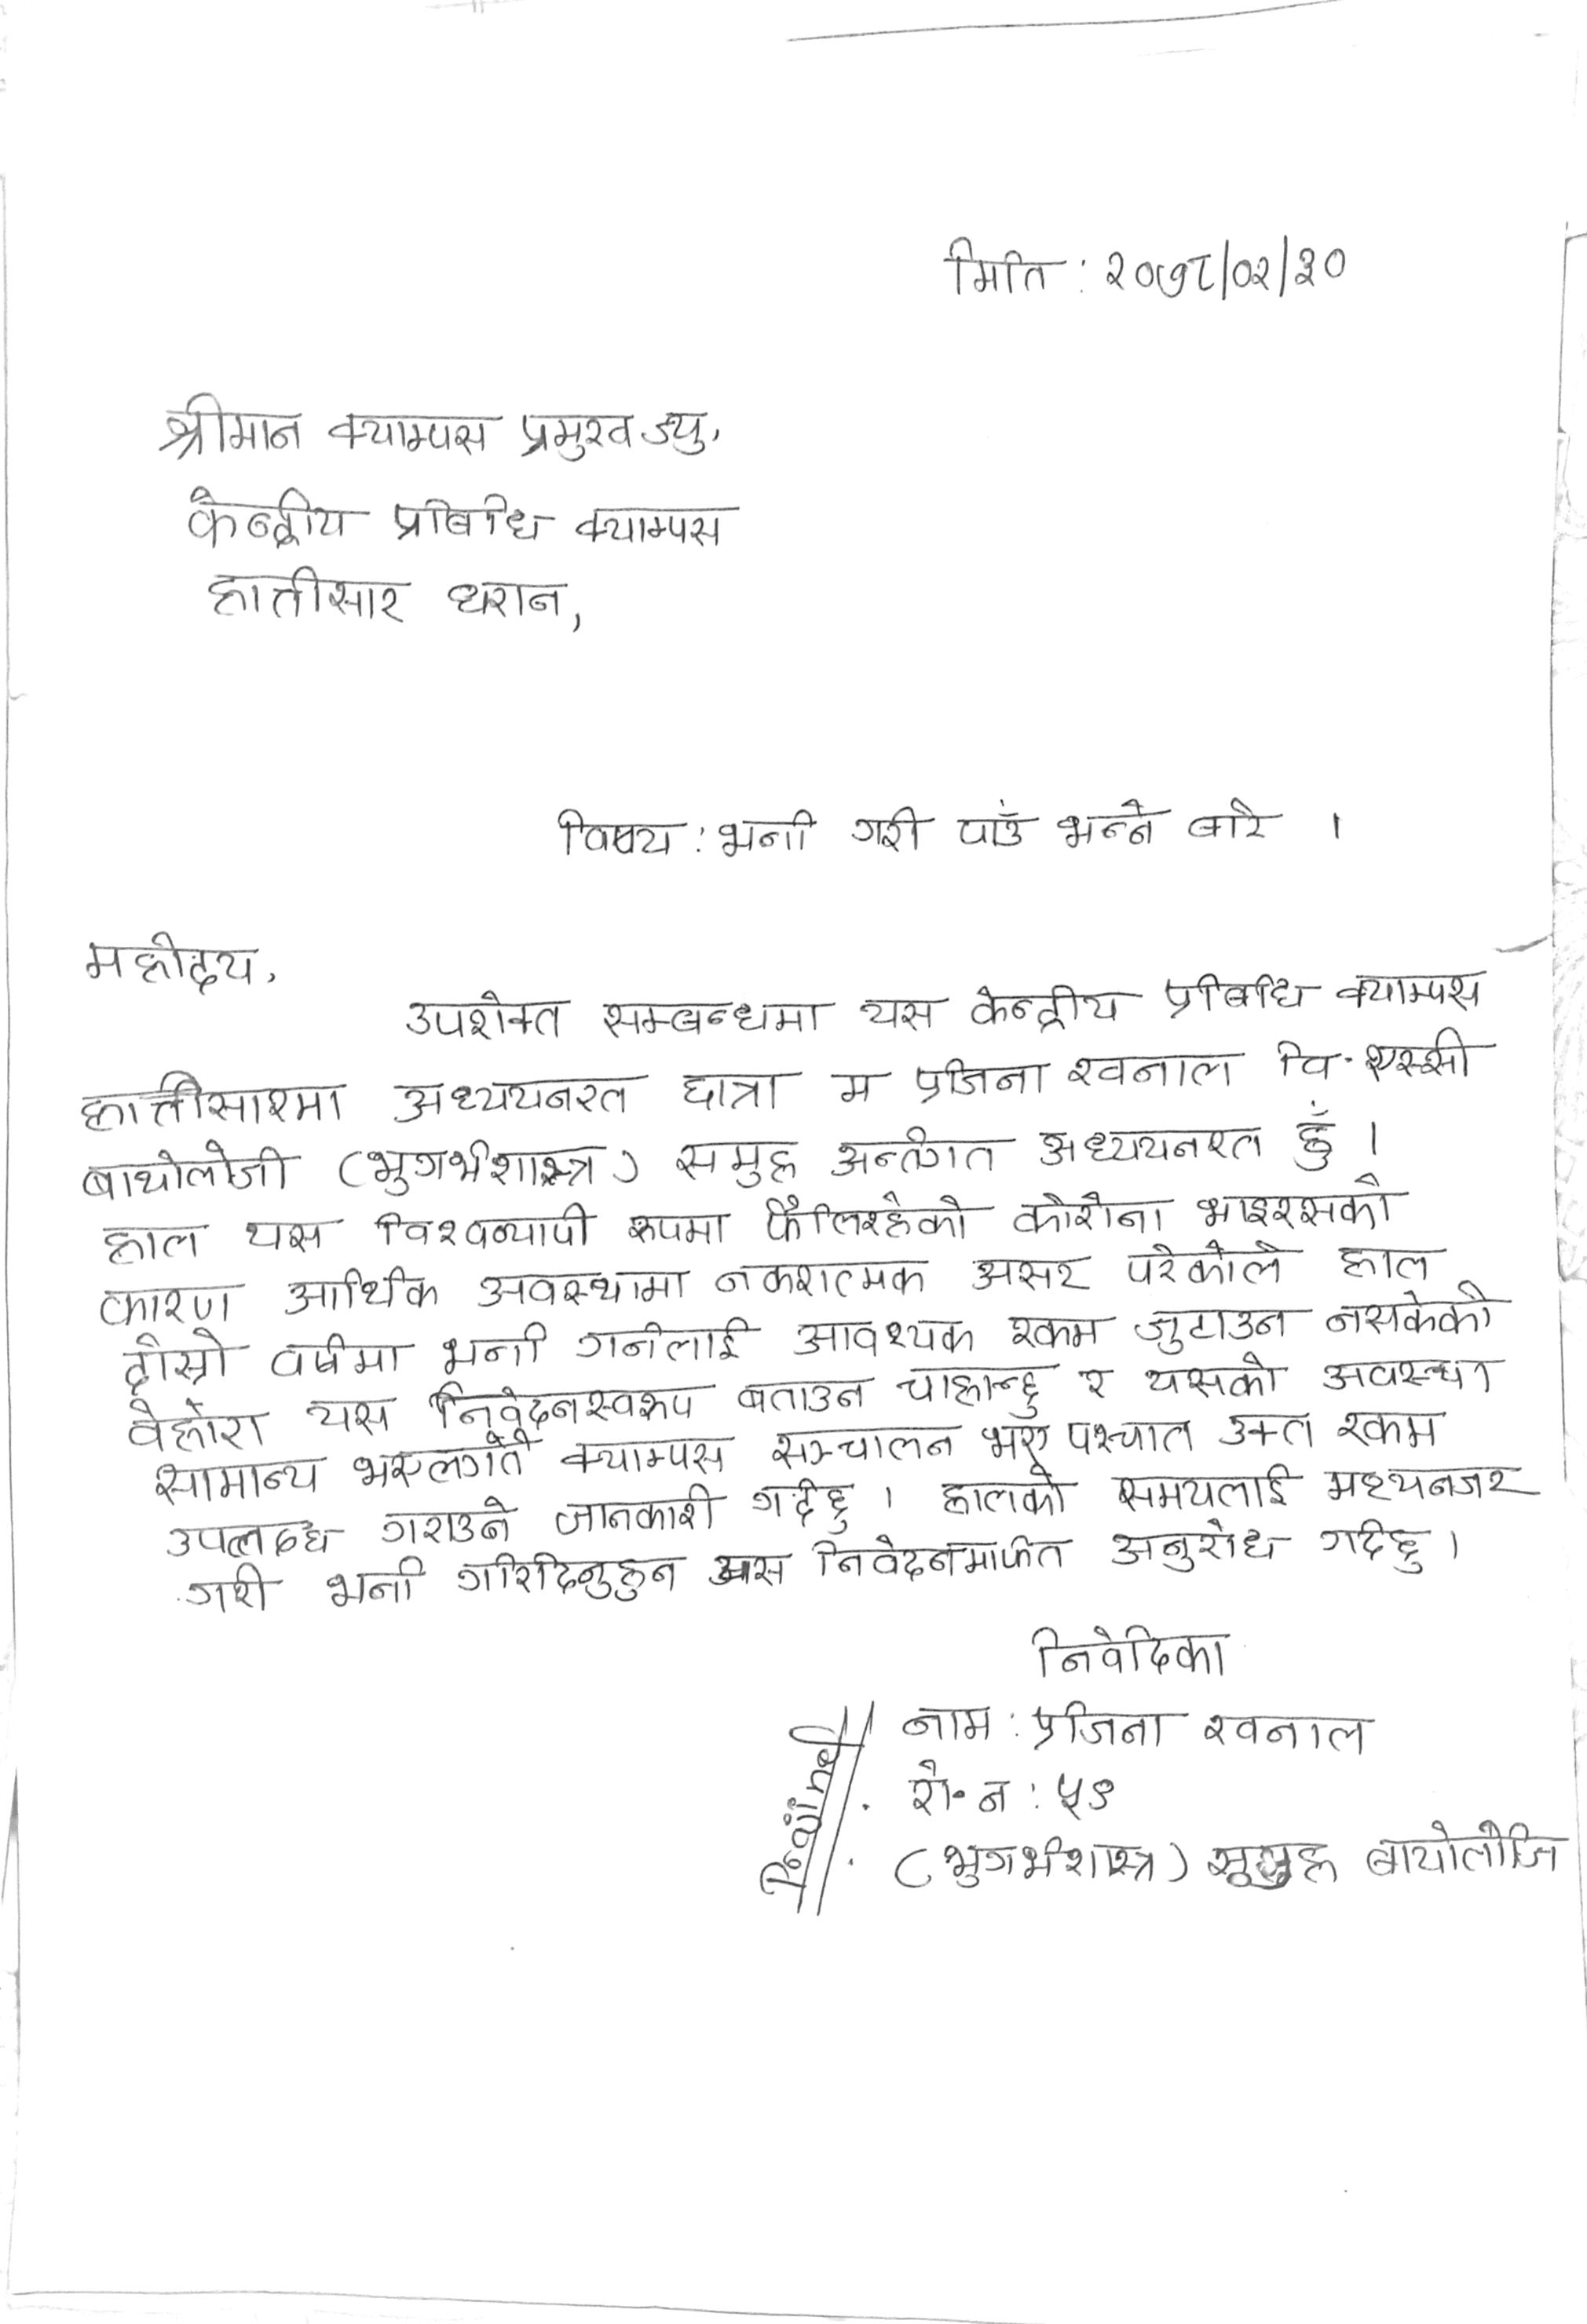 मिति : २०७८/०२/३०
श्रीमान क्याम्पस प्रमुख ज्यु,
केन्द्रीय प्रबिधि क्याम्पस
हात्तीसार धरान,
विषय : भर्ना गरी पाउँ भन्ने बारे ।
महोदय,
उपरोक्त सम्बन्धमा यस केन्द्रीय प्रबिधि क्याम्पस
हात्तीसारमा अध्ययनरत छात्रा म प्रजिना खनाल वि. एस्सी
बायोलोजी (भुगर्भशास्त्र) समुह अन्र्तगत अध्ययनरत छुँ ।
हाल यस विश्वव्यापी रुपमा फैलिरहेको कोरोना भाइरसको
कारण आर्थिक अवस्थामा नकरात्मक असर परेकोले हाल
दोस्रो वर्षमा भर्ना गर्नलाई आवश्यक रकम जुटाउन नसकेको
वेहोरा यस निवेदनस्वरुप बताउन चाहान्छु र यसको अवस्था
सामान्य भएलगत्तै क्याम्पस सञ्चालन भए पश्चात उक्त रकम
उपलब्ध गराउने जानकारी गर्दछु । हालको समयलाई मध्यनजर
गरी भर्ना गरिदिनुहुन यस निवेदनमार्फत अनुरोध गर्दछु ।
निवेदिका
नाम : प्रजिना खनाल
रो. न : ५९
(भुगर्भशास्त्र) समुह बायोलोजि